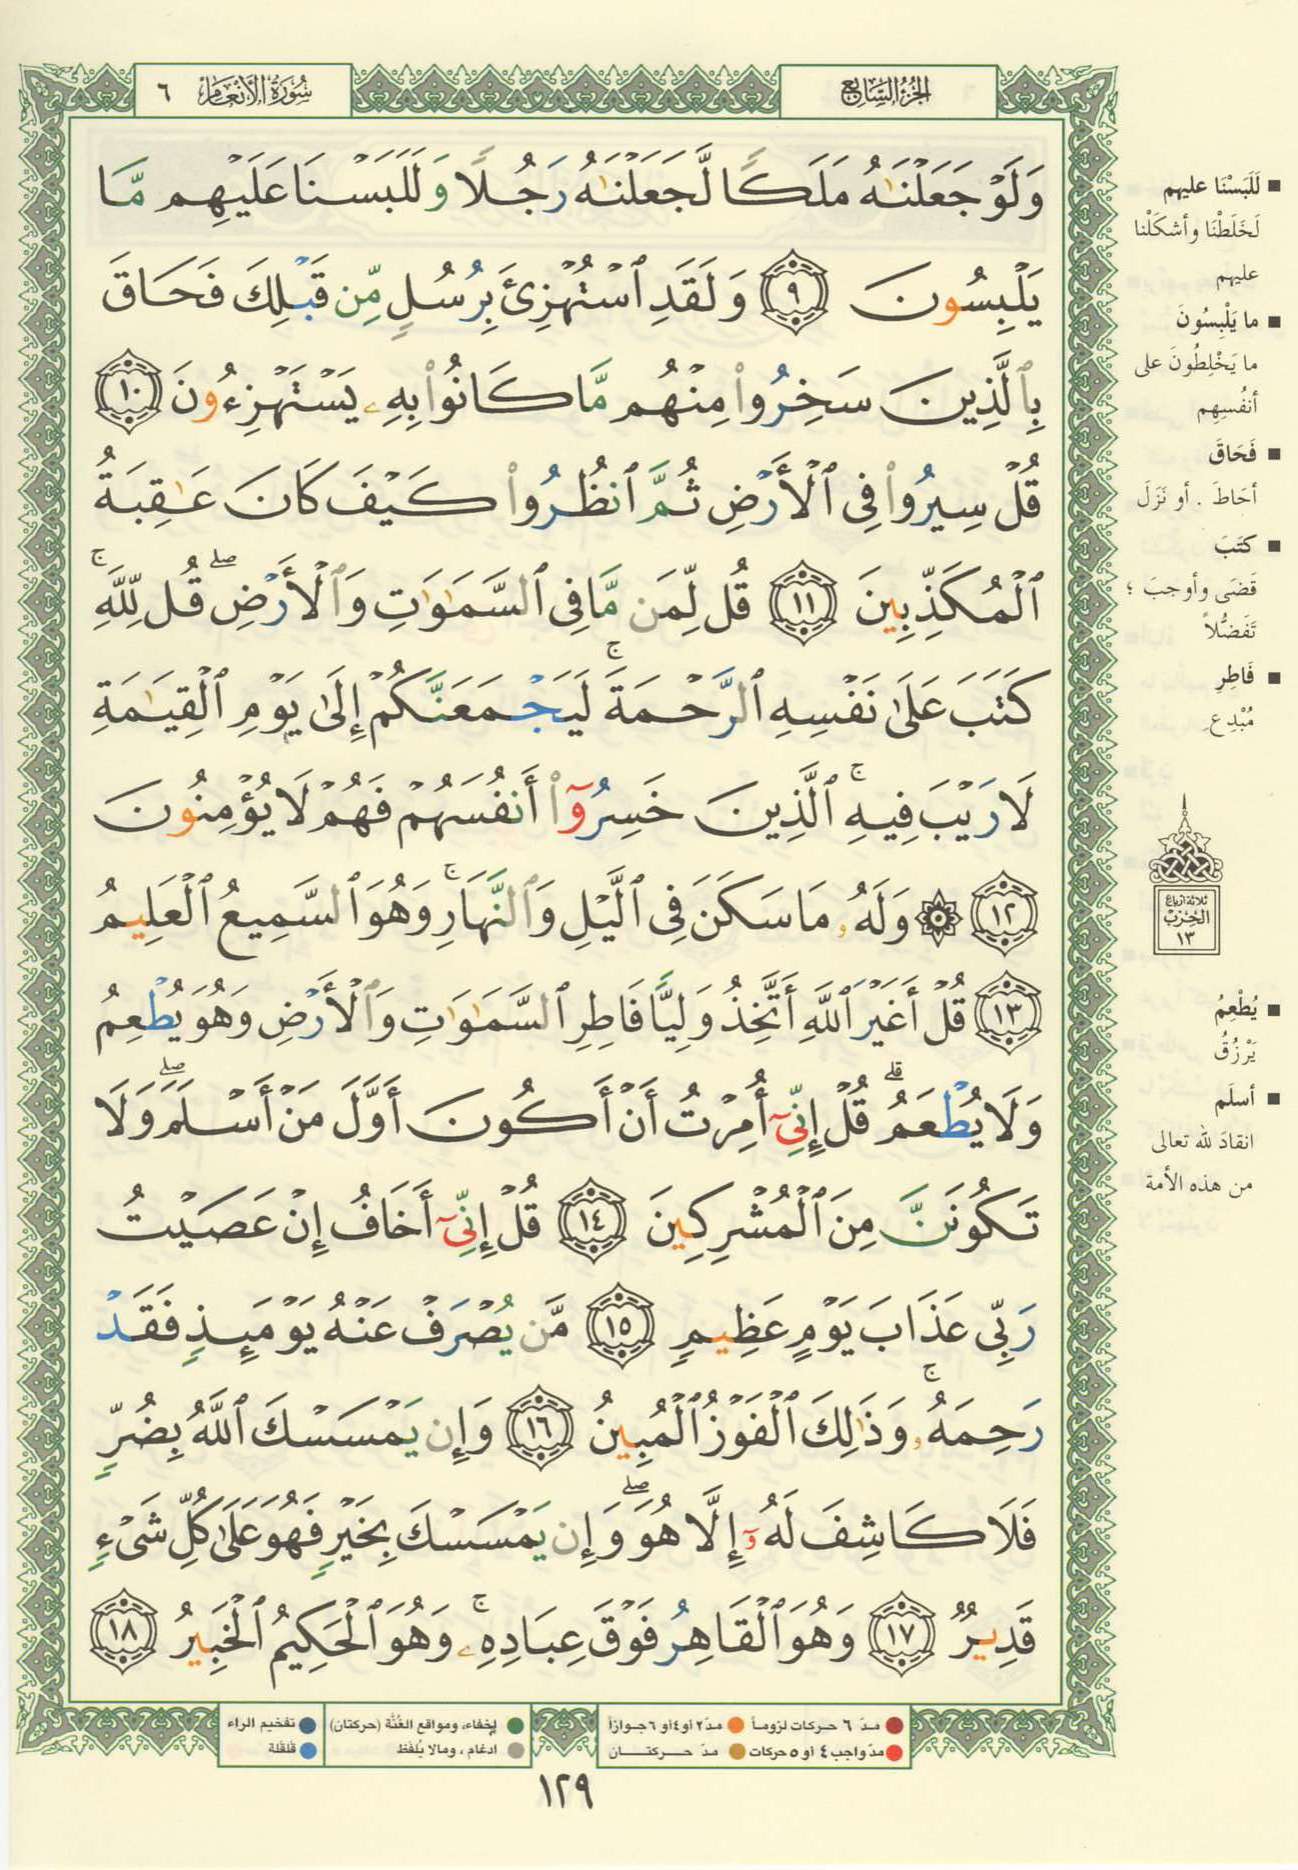 سُورَةُ الأَنْعَام ٦
الجُزْءُ السَّابِع
وَلَوْ جَعَلْنَٰهُ مَلَكًا لَّجَعَلْنَٰهُ رَجُلًا وَلَلَبَسْنَا عَلَيْهِم مَّا
يَلْبِسُونَ ٩ وَلَقَدِ ٱسْتُهْزِئَ بِرُسُلٍ مِّن قَبْلِكَ فَحَاقَ
بِٱلَّذِينَ سَخِرُوا۟ مِنْهُم مَّا كَانُوا۟ بِهِۦ يَسْتَهْزِءُونَ ١٠
قُلْ سِيرُوا۟ فِى ٱلْأَرْضِ ثُمَّ ٱنظُرُوا۟ كَيْفَ كَانَ عَٰقِبَةُ
ٱلْمُكَذِّبِينَ ١١ قُل لِّمَن مَّا فِى ٱلسَّمَٰوَٰتِ وَٱلْأَرْضِ ۖ قُل لِّلَّهِ ۚ
كَتَبَ عَلَىٰ نَفْسِهِ ٱلرَّحْمَةَ ۚ لَيَجْمَعَنَّكُمْ إِلَىٰ يَوْمِ ٱلْقِيَٰمَةِ
لَا رَيْبَ فِيهِ ۚ ٱلَّذِينَ خَسِرُوٓا۟ أَنفُسَهُمْ فَهُمْ لَا يُؤْمِنُونَ
١٢ ۞ وَلَهُۥ مَا سَكَنَ فِى ٱلَّيْلِ وَٱلنَّهَارِ ۚ وَهُوَ ٱلسَّمِيعُ ٱلْعَلِيمُ
١٣ قُلْ أَغَيْرَ ٱللَّهِ أَتَّخِذُ وَلِيًّا فَاطِرِ ٱلسَّمَٰوَٰتِ وَٱلْأَرْضِ وَهُوَ يُطْعِمُ
وَلَا يُطْعَمُ ۗ قُلْ إِنِّىٓ أُمِرْتُ أَنْ أَكُونَ أَوَّلَ مَنْ أَسْلَمَ ۖ وَلَا
تَكُونَنَّ مِنَ ٱلْمُشْرِكِينَ ١٤ قُلْ إِنِّىٓ أَخَافُ إِنْ عَصَيْتُ
رَبِّى عَذَابَ يَوْمٍ عَظِيمٍ ١٥ مَّن يُصْرَفْ عَنْهُ يَوْمَئِذٍ فَقَدْ
رَحِمَهُۥ ۚ وَذَٰلِكَ ٱلْفَوْزُ ٱلْمُبِينُ ١٦ وَإِن يَمْسَسْكَ ٱللَّهُ بِضُرٍّ
فَلَا كَاشِفَ لَهُۥٓ إِلَّا هُوَ ۖ وَإِن يَمْسَسْكَ بِخَيْرٍ فَهُوَ عَلَىٰ كُلِّ شَىْءٍ
قَدِيرٌ ١٧ وَهُوَ ٱلْقَاهِرُ فَوْقَ عِبَادِهِۦ ۚ وَهُوَ ٱلْحَكِيمُ ٱلْخَبِيرُ ١٨
■ لَلَبَسْنَا عليهم
لَخَلَطْنَا وأشكَلْنا
عليهم
■ ما يَلْبِسُونَ
ما يَخْلِطُونَ على
أنفُسِهِم
■ فَحَاقَ
أحَاطَ . أو نَزَلَ
■ كتَبَ
قَضَى وأوجبَ ؛
تَفَضُّلاً
■ فَاطِرِ
مُبْدِعِ
ثلاثة أرباع
الحزب
١٣
■ يُطْعِمُ
يَرْزُقُ
■ أسلَم
انقادَ لله تعالى
من هذه الأمة
مدّ ٦ حركات لزوماً
مدّ ٢ أو ٤ أو ٦ جوازاً
مدّ واجب ٤ أو ٥ حركات
مدّ حركتان
إخفاء، ومواقع الغُنَّة (حركتان)
إدغام ، ومالا يُلفَظ
تفخيم الراء
قلقلة
١٢٩